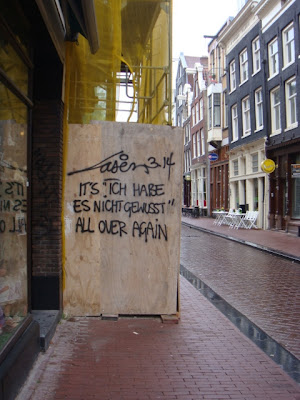 Laser 3.14
IT'S "ICH HABE
ES NICHT GEWUSST"
ALL OVER AGAIN